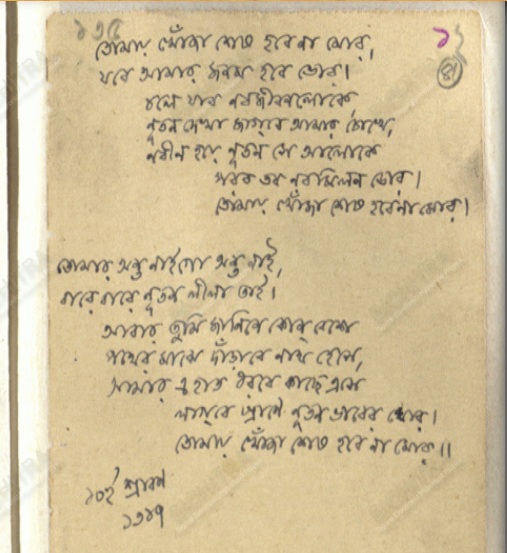 ১৩৫
তোমায় খোঁজা শেষ হবে না মোর,
যবে আমার জনম হবে ভোর।
চলে যাব নবজীবনলোকে,
নূতন দেখা জাগবে আমার চোখে,
নবীন হয়ে নূতন সে আলোকে
পরব তব নবমিলন ডোর।
তোমায় খোঁজা শেষ হবে না মোর।
তোমার অন্ত নাই গো অন্ত নাই,
বারে বারে নূতন লীলা তাই।
আবার তুমি জানিনে কোন্ বেশে
পথের মাঝে দাঁড়াবে নাথ হেসে,
আমার এ হাত ধরবে কাছে এসে
লাগবে প্রাণে নূতন ভাবের ঘোর।
তোমায় খোঁজা শেষ হবে না মোর॥
১০ই শ্রাবণ
১৩১৭